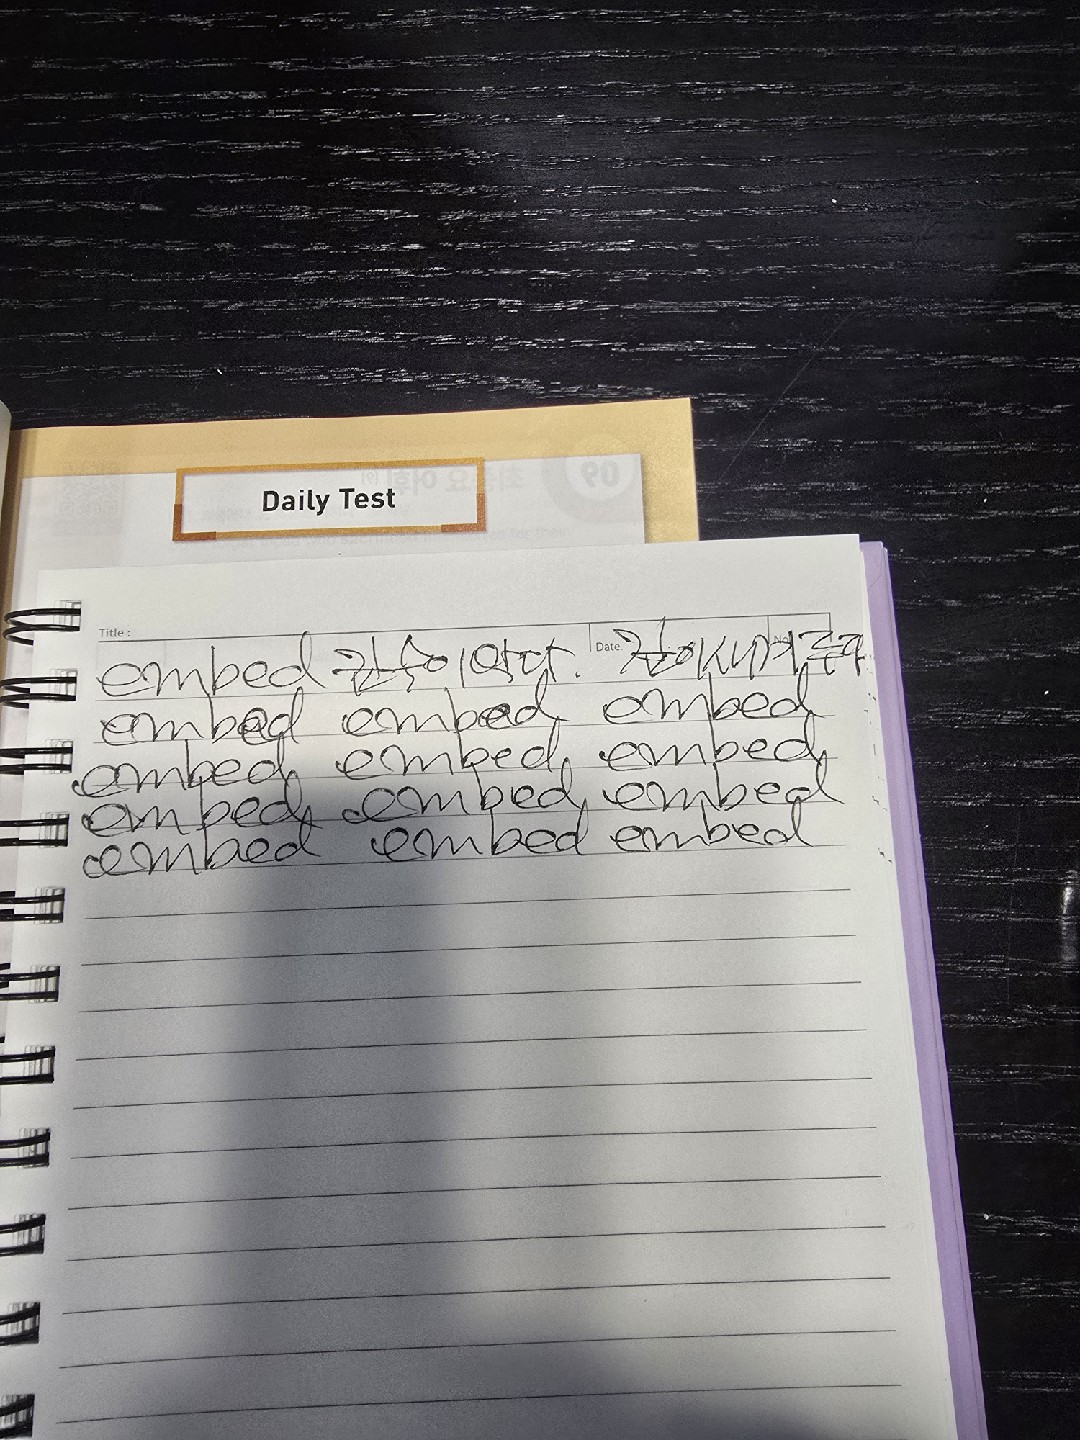 Daily Test
Title :
Date.
embed
embed embed embed
embed embed embed
embed embed embed
embed embed embed